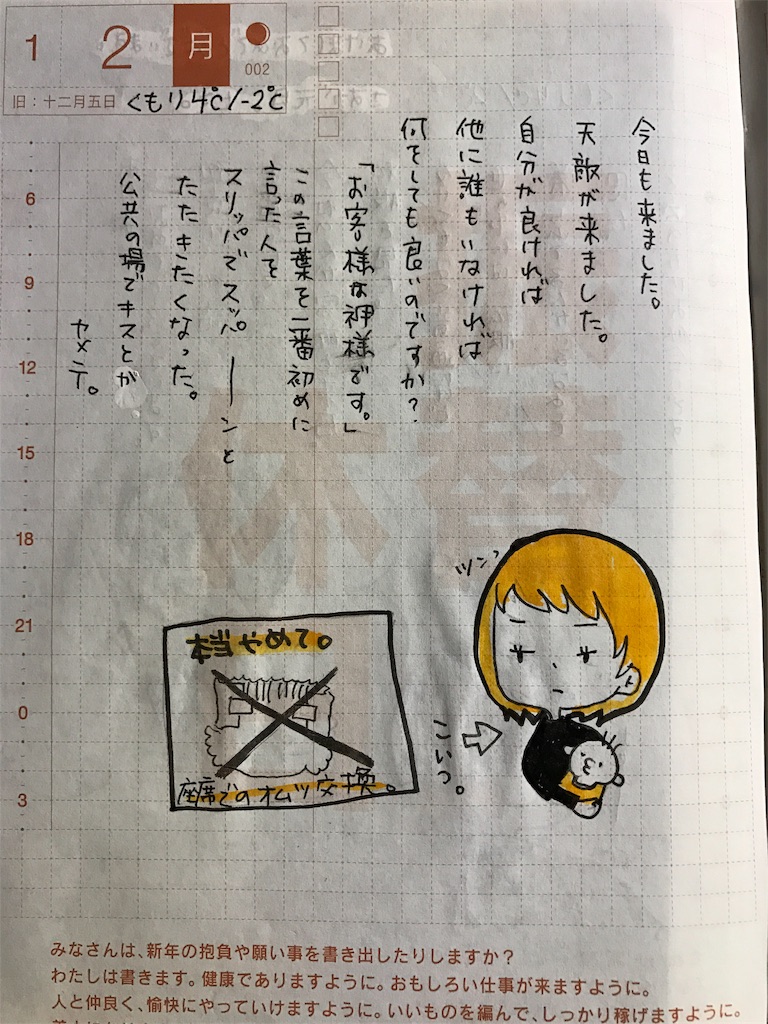 1 2 月
002
旧：十二月五日 くもり 4℃/-2℃
今日も来ました。
天敵が来ました。
自分が良ければ
他に誰もいなければ
何をしても良いのですか?
「お客様は神様です。」
この言葉を一番初めに
言った人を
スリッパでスッパーーンと
たたきたくなった。
公共の場でキスとか
ヤメテ。
6
9
12
15
18
21
0
3
ツンッ
こいつ。
本当やめて。
座席でのオムツ交換。
みなさんは、新年の抱負や願い事を書き出したりしますか？
わたしは書きます。健康でありますように。おもしろい仕事が来ますように。
人と仲良く、愉快にやっていけますように。いいものを編んで、しっかり稼げますように。